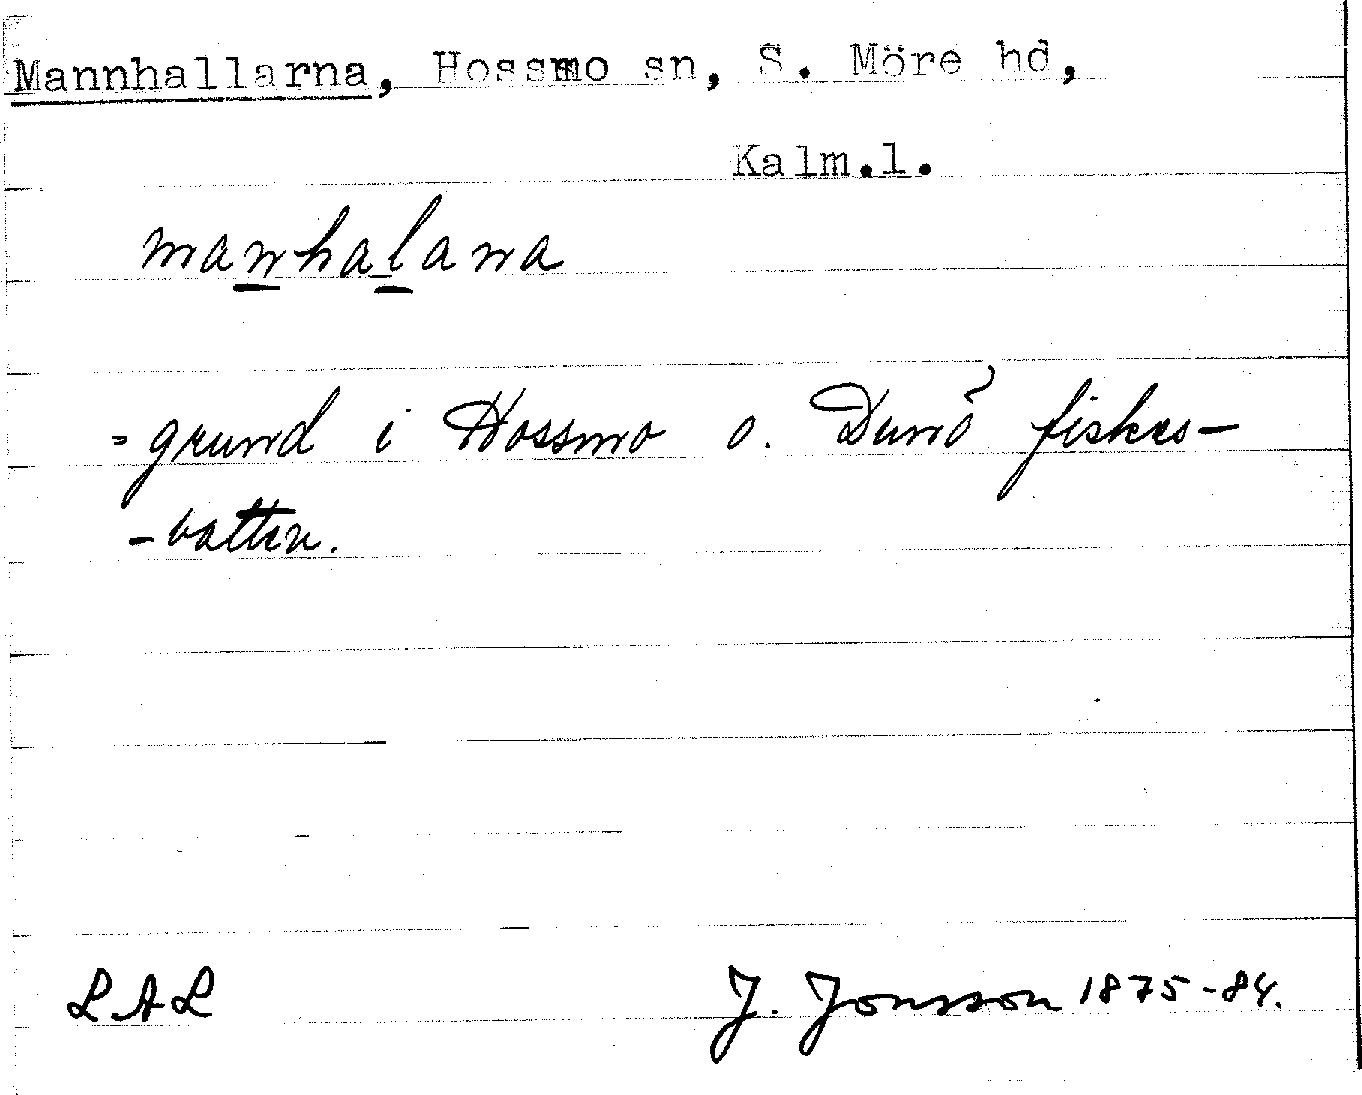 Mannhallarna, Hossmo sn, S. Möre hd,
Kalm.l.
manhalana
= grund i Hossmo o. Dunö fiske-
-vatten.
LAL J. Jonsson 1875-84.